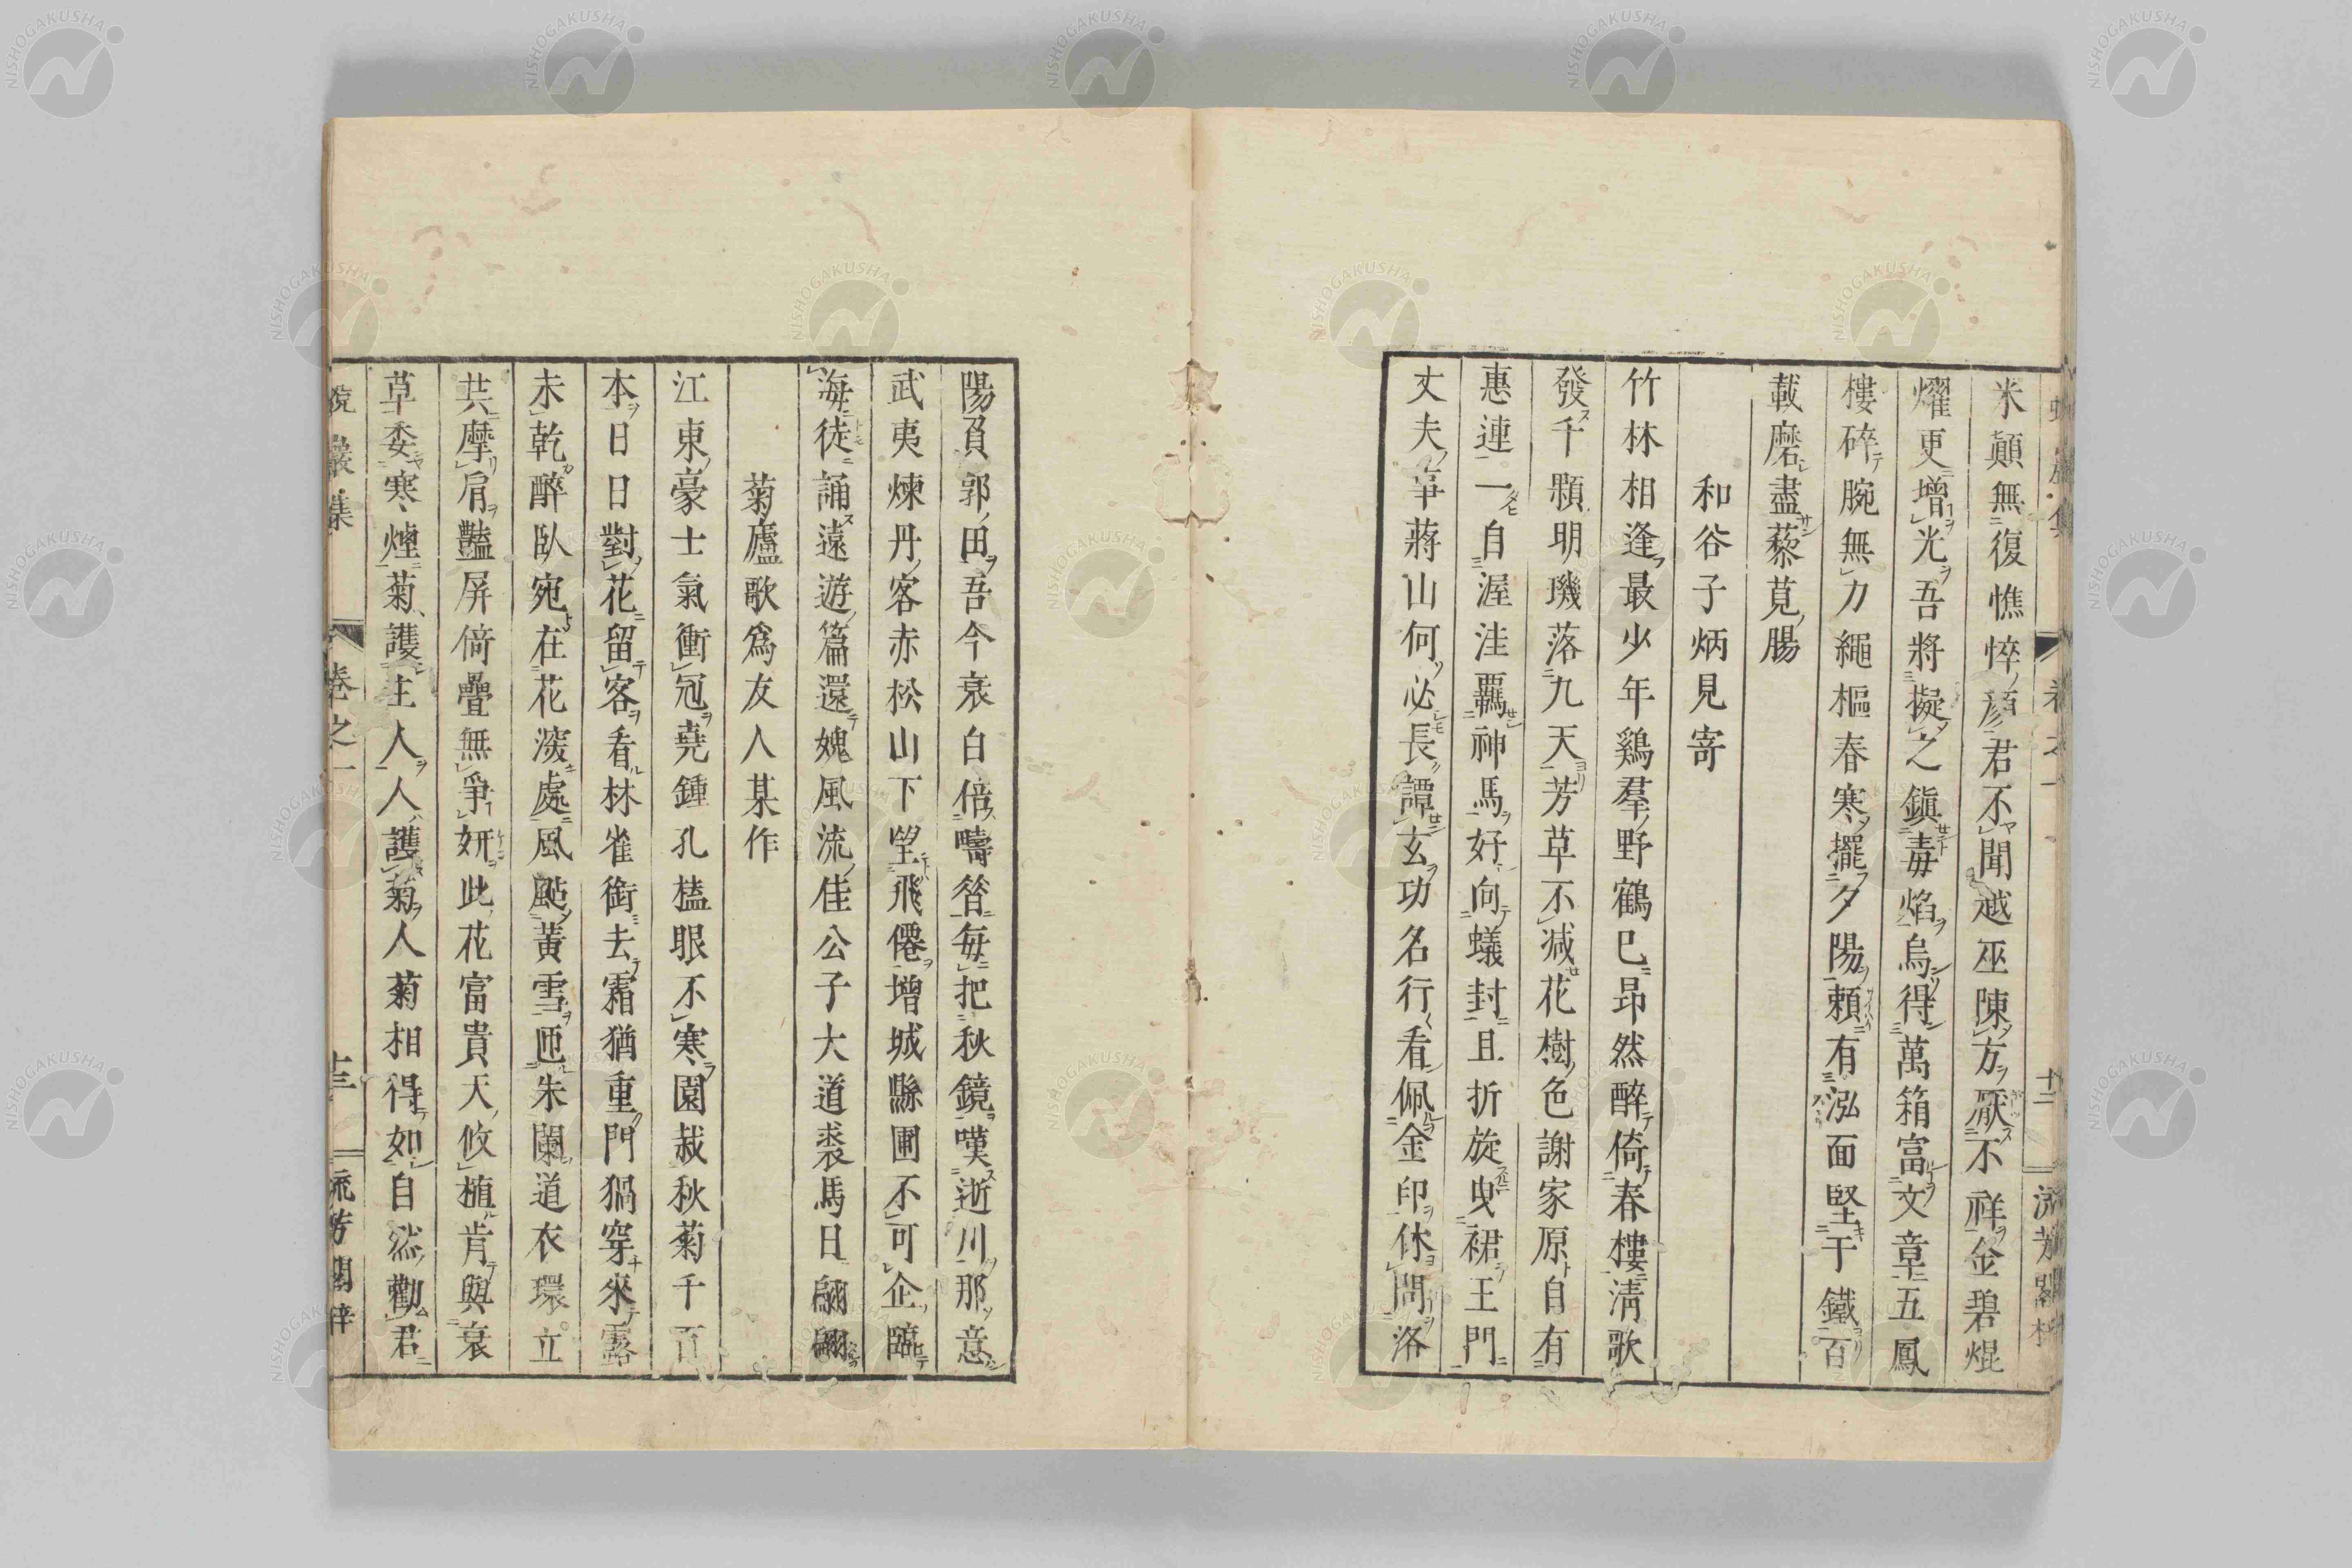 米顛無復憔悴顏君不聞越巫陳方厭不祥金碧焜
燿更增光吾將擬之鎮毒焰烏得萬箱富文章五鳳
樓碎腕無力繩樞春寒擺夕陽賴有泓面堅于鐵百
載磨盡藜莧腸
和谷子炳見寄
竹林相逢最少年鷄羣野鶴已昂然醉倚春樓清歌
發千顆明璣落九天芳草不減花樹色謝家原自有
惠連一自渥洼羈神馬好向蟻封且折旋曳裾王門
丈夫事蔣山何必長譚玄功名行看佩金印休問洛
陽負郭田吾今衰白倍疇昝每把秋鏡嘆逝川那意
武夷煉丹客赤松山下望飛僊增城縣圃不可企臨
海徒誦遠遊篇還媿風流佳公子大道裘馬日翩翩
菊廬歌爲友人某作
江東豪士氣衝冠堯鍾孔榼眼不寒園栽秋菊千百
本日日對花留客看林雀銜去霜猶重門猧穿來露
未乾醉臥宛在花深處風颭黃雪匝朱闌道衣環立
共摩肩豔屏倚疊無爭妍此花富貴天攸植肯與衰
草委寒煙菊護主人人護菊人菊相得如自然勸君
蛻巖集 卷之一 十三 流芳閣梓
NISHOGAKUSHA